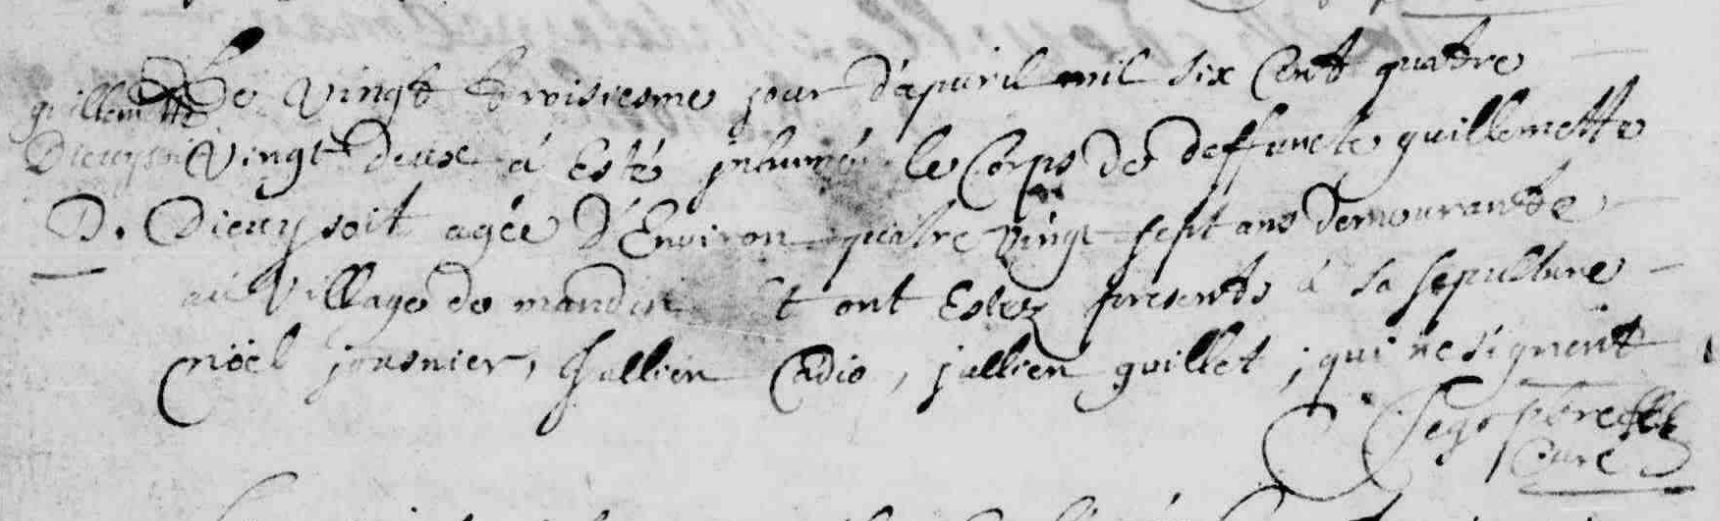 guillemette
Dieuysoit
D.
Le vingt troisiesme jour d'apuril mil six cent quatre
vingt deux a esté inhumé le corps de deffuncte guillemette
Dieuysoit agée d'Environ quatre vingt sept ans demourante
au village de mandin t ont Estez presents a sa sepulture
nöel jousnier, Jullien Cadio, jullien guillet ; qui ne signent
pbre
Curé